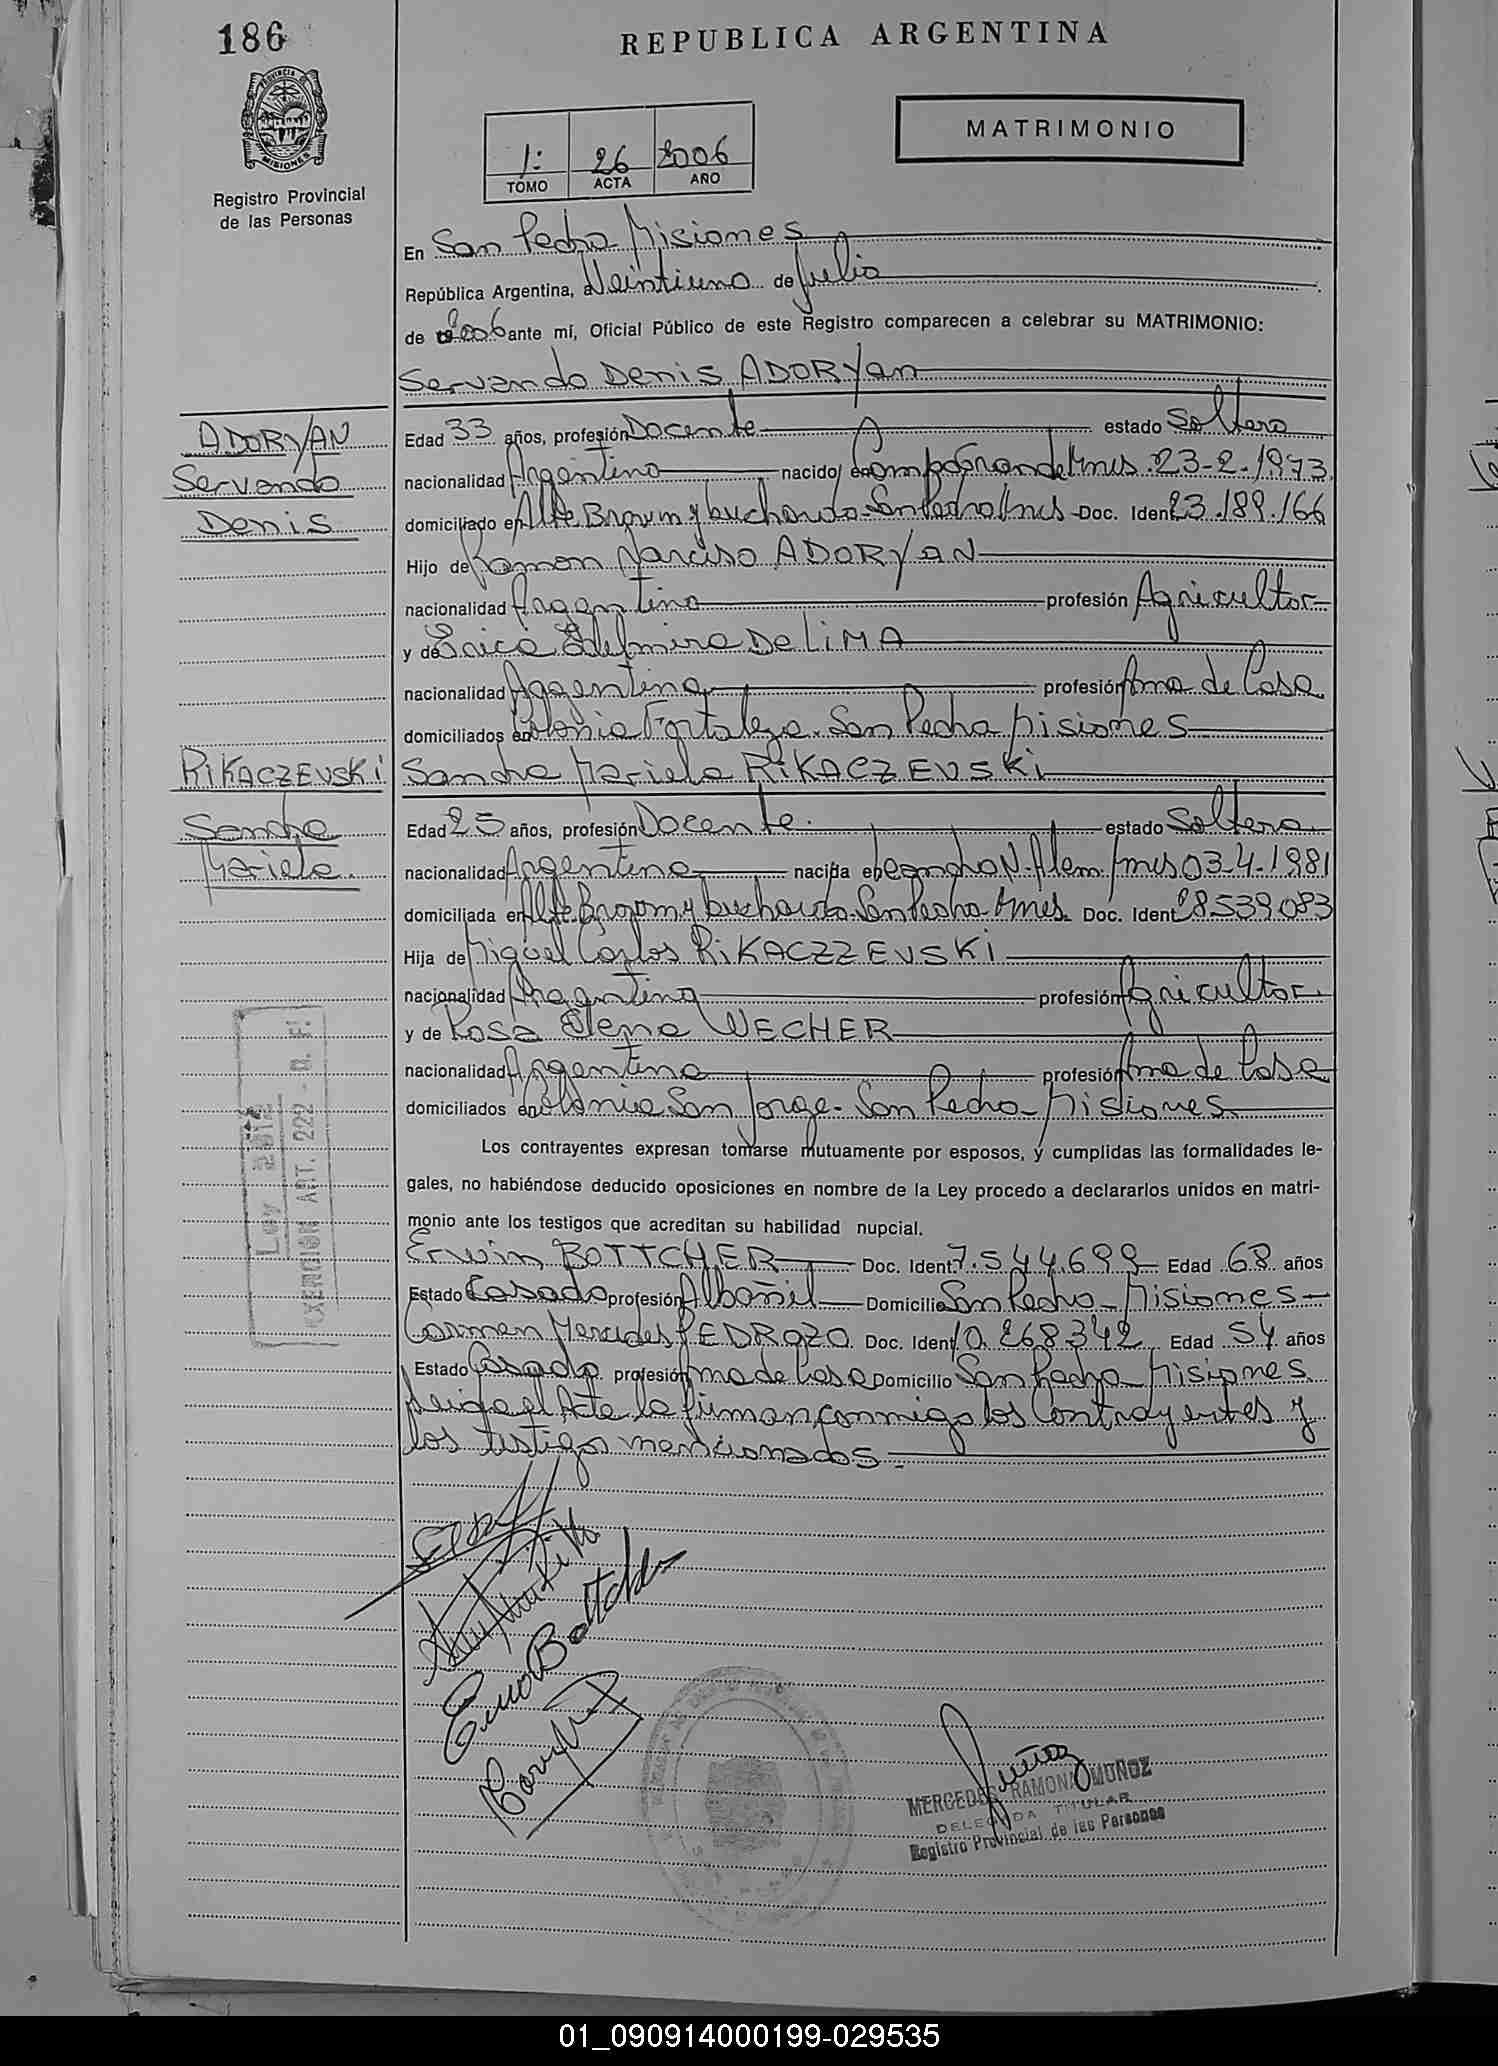 186
REPUBLICA ARGENTINA
PROVINCIA DE
MISIONES
Registro Provincial
de las Personas
1: 26 2006
TOMO ACTA AÑO
MATRIMONIO
En San Pedro Misiones
República Argentina, a Veintiuno de Julio
de 2006 ante mí, Oficial Público de este Registro comparecen a celebrar su MATRIMONIO:
Servando Denis ADORYan
ADORYAN
Servando
Denis
Edad 33 años, profesión Docente estado Soltero
nacionalidad Argentino nacido en Campo Grande Mnes. 23-2-1973
domiciliado en Alte Brown y buchardo San Pedro Mnes Doc. Ident 23.189.166
Hijo de Ramon Narciso ADORYAN
nacionalidad Argentino profesión Agricultor
y de Edelmira De LiMA
nacionalidad Argentina profesión Ama de Casa
domiciliados en Colonia Fortaleza. San Pedro Misiones
RiKACZEVSKi
Sandra
Mariela
Sandra Mariela RiKACZEVSKi
Edad 25 años, profesión Docente. estado Soltera
nacionalidad Argentina nacida en Leandro N. Alem Mnes 03-4-1981
domiciliada en Alte Brown y buchardo San Pedro Mnes. Doc. Ident 28539083
Hija de Miguel Carlos RiKACZZEVSKi
nacionalidad Argentino profesión Agricultor.
y de Rosa Elena WECHER
nacionalidad Argentina profesión Ama de Casa
domiciliados en Colonia San Jorge - San Pedro - Misiones
Los contrayentes expresan tomarse mutuamente por esposos, y cumplidas las formalidades le-
gales, no habiéndose deducido oposiciones en nombre de la Ley procedo a declararlos unidos en matri-
monio ante los testigos que acreditan su habilidad nupcial.
Ley
EXENCIÓN ART. 222 - C. F.
Erwin BOTTCHER Doc. Ident 7.544.699 Edad 68 años
Estado Casado profesión Albañil Domicilio San Pedro - Misiones
Carmen Mercedes PEDROZO Doc. Ident 10.268342 Edad 54 años
Estado Casada profesión Ama de Casa Domicilio San Pedro - Misiones.
el Acta la firman conmigo los Contrayentes y
los testigos mencionados.-
MERCEDES RAMONA MUÑOZ
DELEGADA TITULAR
Registro Provincial de las Personas
01_090914000199-029535